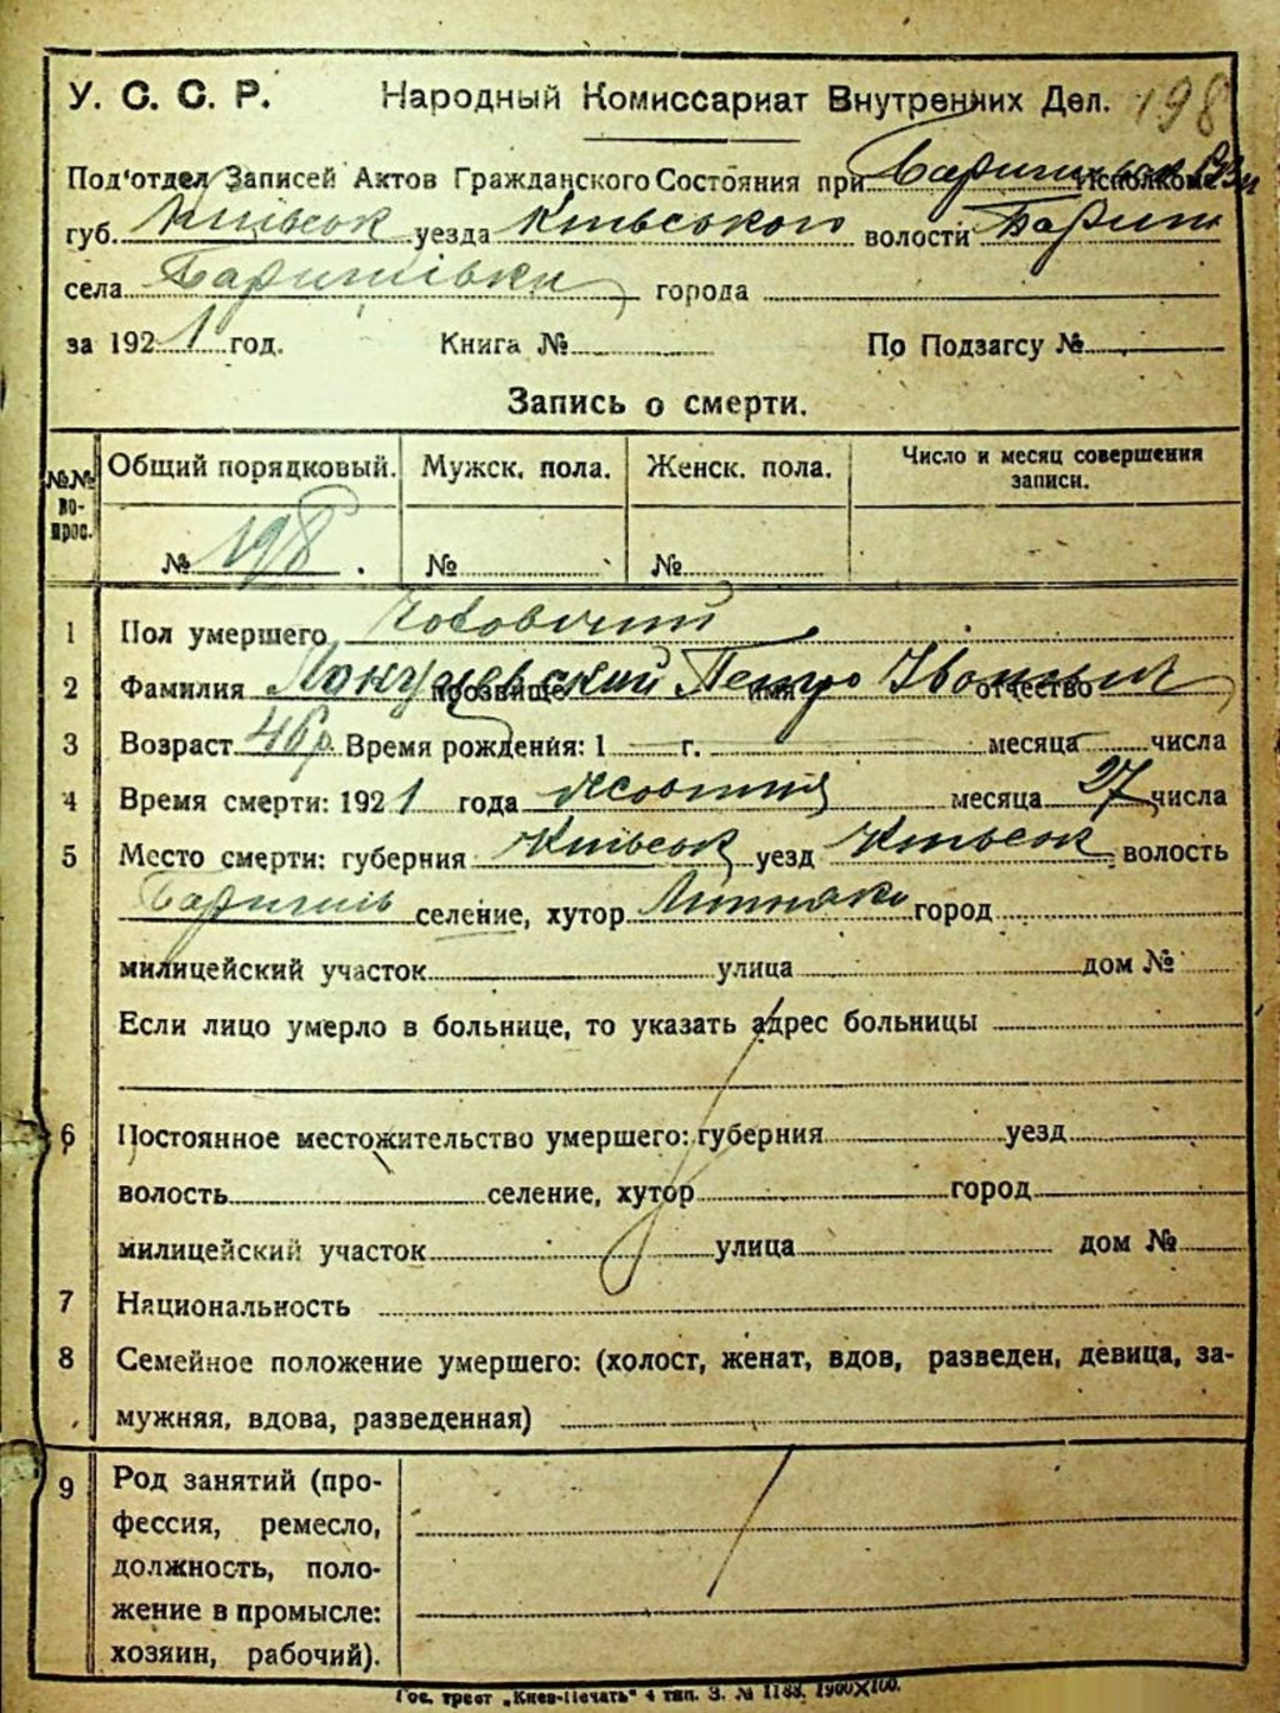 У. С. С. Р. Народный Комиссариат Внутренних Дел. 198
Под'отдел Записей Актов Гражданского Состояния при Исполкоме
губ. Київськ уезда Київського волости Бариш
села Баришівки города
за 1921 год. Книга № По Подзагсу №
Запись о смерти.
№№ во-прос. Общий порядковый. Мужск. пола. Женск. пола. Число и месяц совершения
записи.
№ 198. № №
1 Пол умершего Чоловічий
2 Фамилия прозвище Петро имя Іванович отчество
3 Возраст 46 р. Время рождения: 1 г. месяца числа
4 Время смерти: 1921 года жовтня месяца 27 числа
5 Место смерти: губерния Київськ уезд Київськ волость
Баришів селение, хутор город
милицейский участок улица дом №
Если лицо умерло в больнице, то указать адрес больницы
6 Постоянное местожительство умершего: губерния уезд
волость селение, хутор город
милицейский участок улица дом №
7 Национальность
8 Семейное положение умершего: (холост, женат, вдов, разведен, девица, за-
мужняя, вдова, разведенная)
9 Род занятий (про-
фессия, ремесло,
должность, поло-
жение в промысле:
хозяин, рабочий).
Гос. трест „Киев-Печать“ 4 тип. З. № 1188. 1900X100.